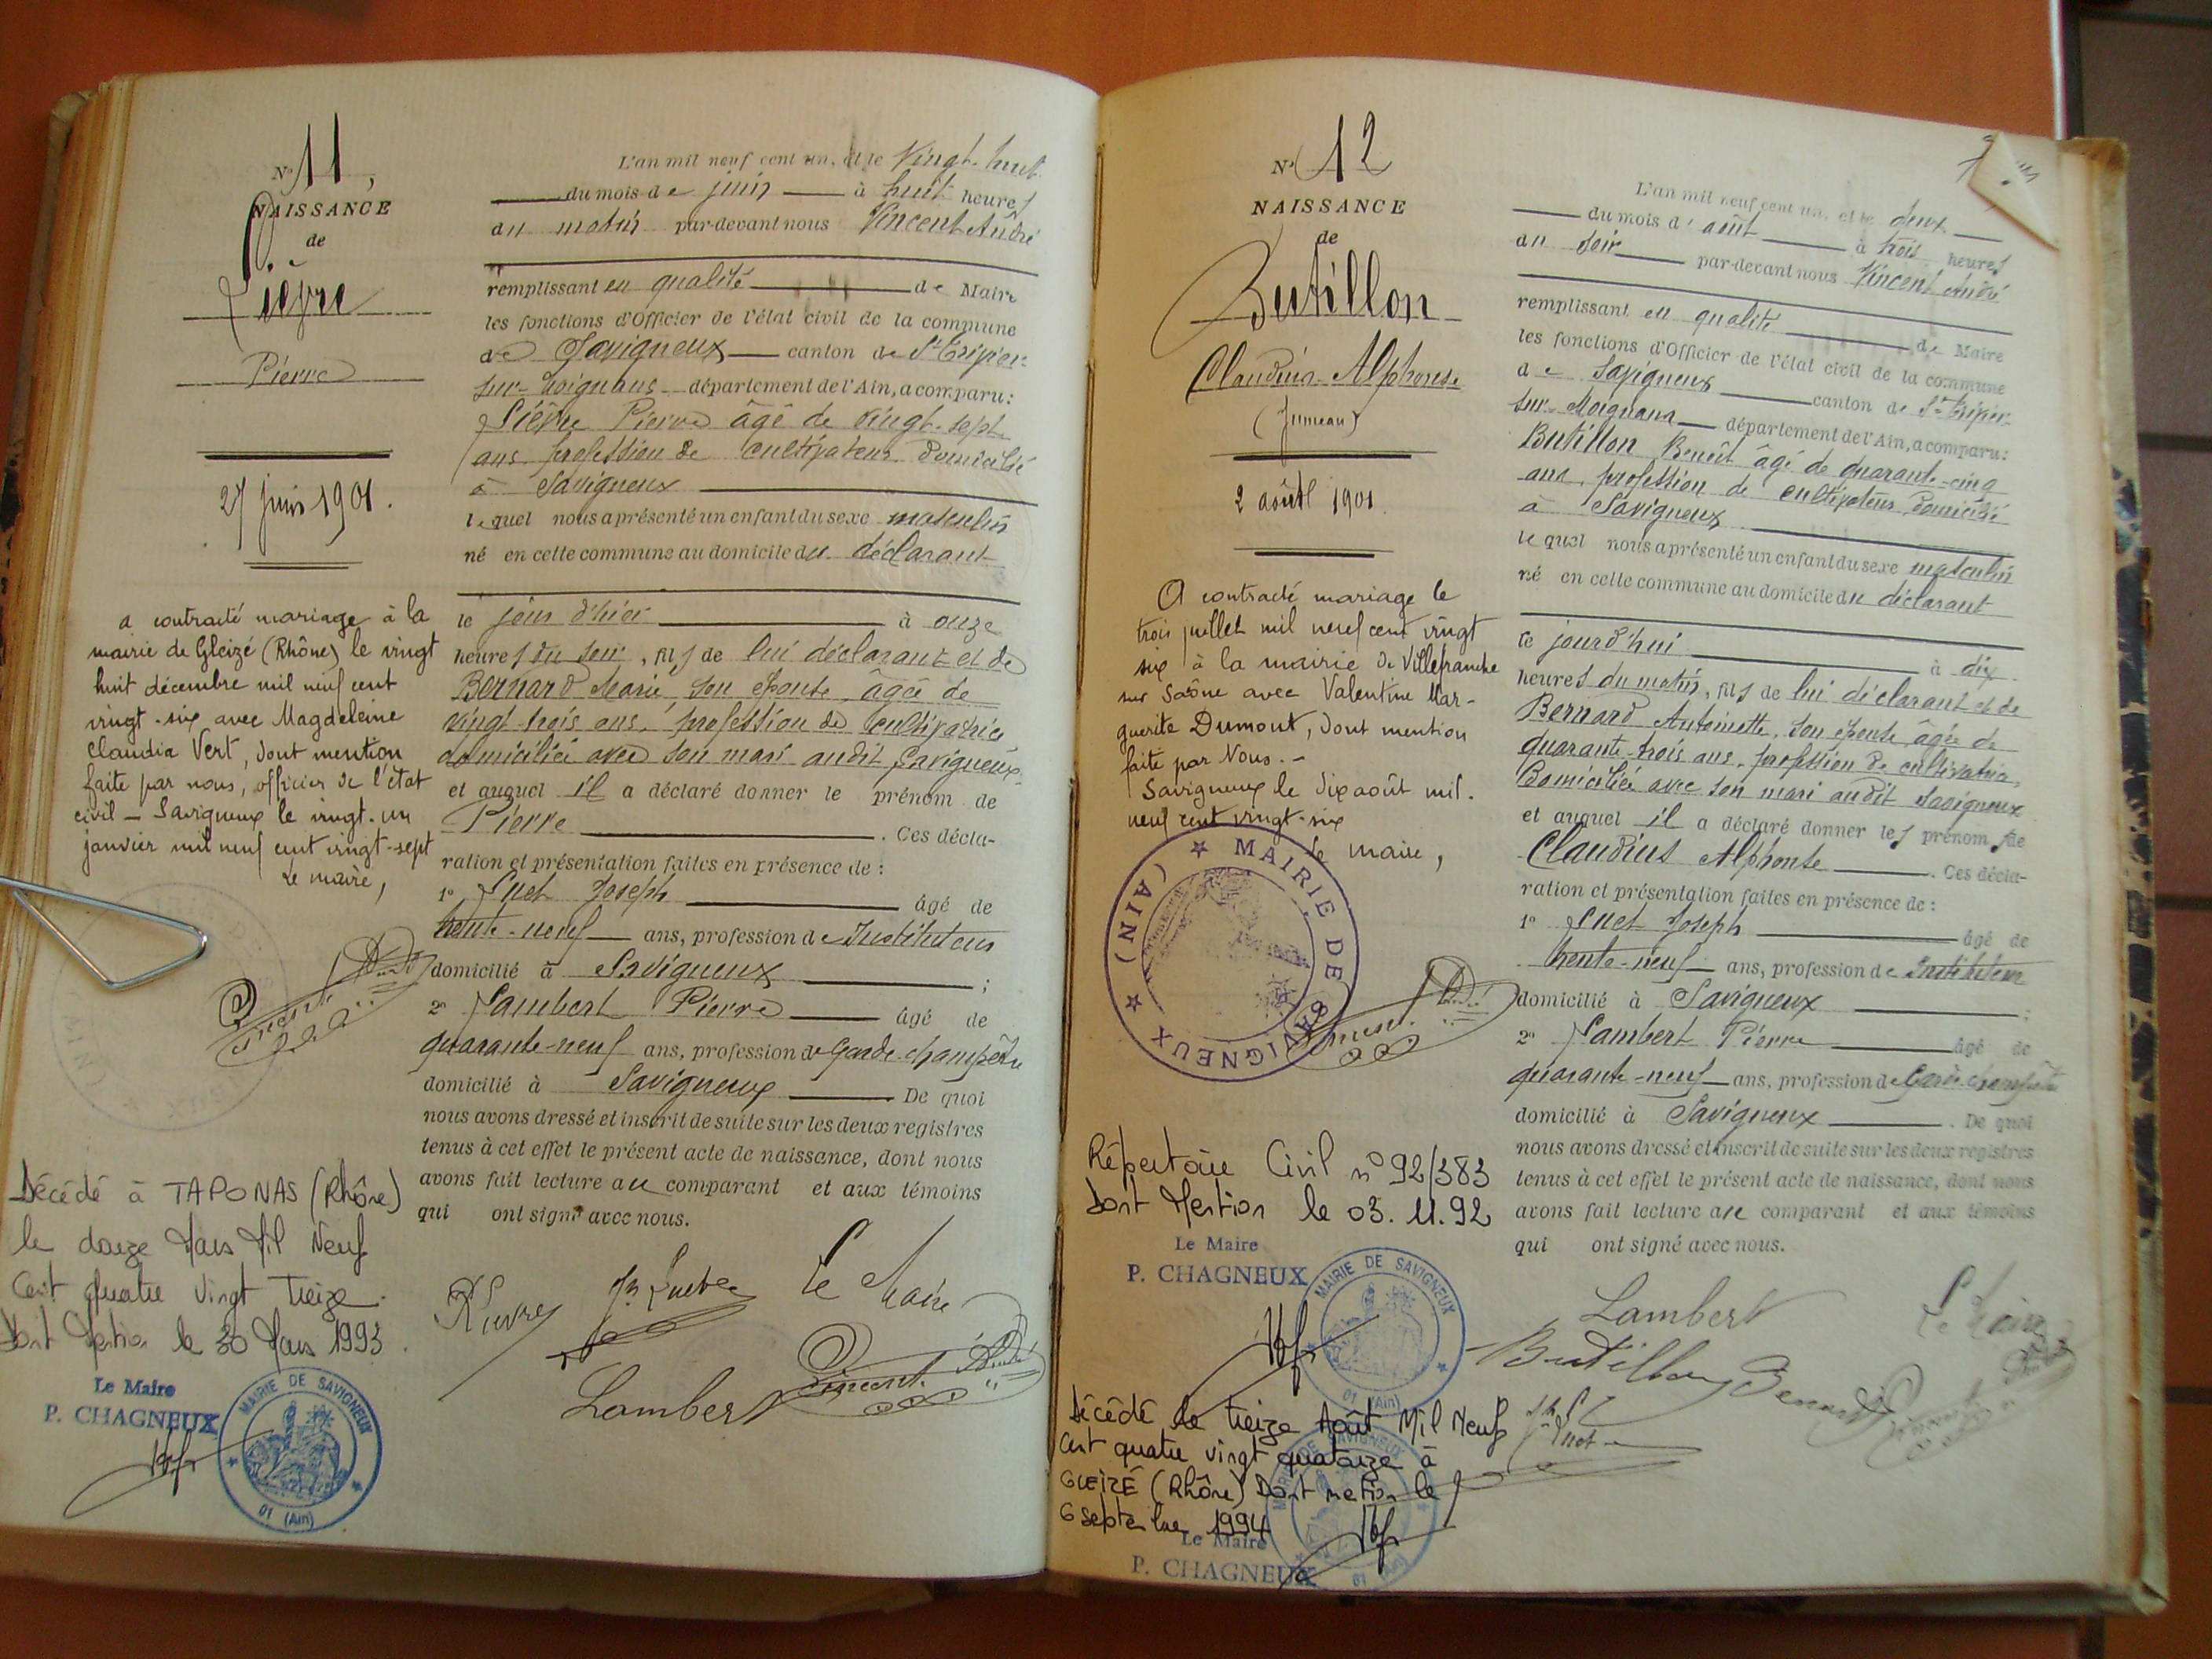 N° 11
NAISSANCE
de
Lièvre
Pierre
27 juin 1901.
a contracté mariage à la
mairie de Gleizé (Rhône) le vingt
huit décembre mil neuf cent
vingt-six avec Magdeleine
Claudia Vert, dont mention
faite par nous, officier de l'état
civil — Savigneux le vingt-un
janvier mil neuf cent vingt-sept
Le maire,
Décédé à TAPONAS (Rhône)
le douze Mars Mil Neuf
Cent Quatre Vingt Treize.
Dont Mention le 30 Mars 1993.
Le Maire
P. CHAGNEUX
MAIRIE DE SAVIGNEUX
01 (Ain)
L'an mil neuf cent un, et le Vingt-huit
du mois de juin à huit heures
du matin par-devant nous Vincent André
remplissant en qualité de Maire
les fonctions d'Officier de l'état civil de la commune
de Savigneux canton de St Trivier-
sur-Moignans département de l'Ain, a comparu:
Lièvre Pierre âgé de vingt-sept
ans profession de cultivateur domicilié
à Savigneux
lequel nous a présenté un enfant du sexe masculin
né en cette commune au domicile du déclarant
le jour d'hier à onze
heures du soir, fils de lui déclarant et de
Bernard Marie, son épouse, âgée de
vingt-trois ans, profession de cultivatrice
domiciliée avec son mari audit Savigneux
et auquel il a déclaré donner le prénom de
Pierre. Ces décla-
ration et présentation faites en présence de:
1° Suet Joseph âgé de
trente-neuf ans, profession de Instituteur
domicilié à Savigneux;
2° Lambert Pierre âgé de
quarante-neuf ans, profession de Garde-champêtre
domicilié à Savigneux De quoi
nous avons dressé et inscrit de suite sur les deux registres
tenus à cet effet le présent acte de naissance, dont nous
avons fait lecture au comparant et aux témoins
qui ont signé avec nous.
Le Maire
Lambert
Vincent André
N° 12
NAISSANCE
de
Butillon
Claudius-Alphonse
(Jumeau)
2 août 1901
A contracté mariage le
trois juillet mil neuf cent vingt
six à la mairie de Villefranche
sur Saône avec Valentine Mar-
guerite Dumont, dont mention
faite par Nous. -
Savigneux le dix août mil.
neuf cent vingt-six
Le maire,
MAIRIE DE SAVIGNEUX
(AIN)
Répertoire Civil n° 92/383
Dont Mention le 03.11.92
Le Maire
P. CHAGNEUX
MAIRIE DE SAVIGNEUX
01 (Ain)
Décédé le treize Août Mil Neuf
Cent quatre vingt quatorze à
GLEIZÉ (Rhône) Dont mention le
6 septembre 1994
Le Maire
P. CHAGNEUX
L'an mil neuf cent un, et le deux
du mois d'août à trois heures
du soir par-devant nous Vincent André
remplissant en qualité de Maire
les fonctions d'Officier de l'état civil de la commune
de Savigneux canton de St Trivier-
sur-Moignans département de l'Ain, a comparu:
Butillon Benoît âgé de quarante-cinq
ans, profession de cultivateur domicilié
à Savigneux
lequel nous a présenté un enfant du sexe masculin
né en cette commune au domicile du déclarant
ce jourd'hui à dix
heures du matin, fils de lui déclarant et de
Bernard Antoinette, son épouse, âgée de
quarante-trois ans, profession de cultivatrice
domiciliée avec son mari audit Savigneux
et auquel il a déclaré donner les prénom de
Claudius Alphonse. Ces décla-
ration et présentation faites en présence de:
1° Suet Joseph âgé de
trente-neuf ans, profession de Instituteur
domicilié à Savigneux;
2° Lambert Pierre âgé de
quarante-neuf ans, profession de Garde-champêtre
domicilié à Savigneux. De quoi
nous avons dressé et inscrit de suite sur les deux registres
tenus à cet effet le présent acte de naissance, dont nous
avons fait lecture au comparant et aux témoins
qui ont signé avec nous.
Lambert
Le Maire
Butillon